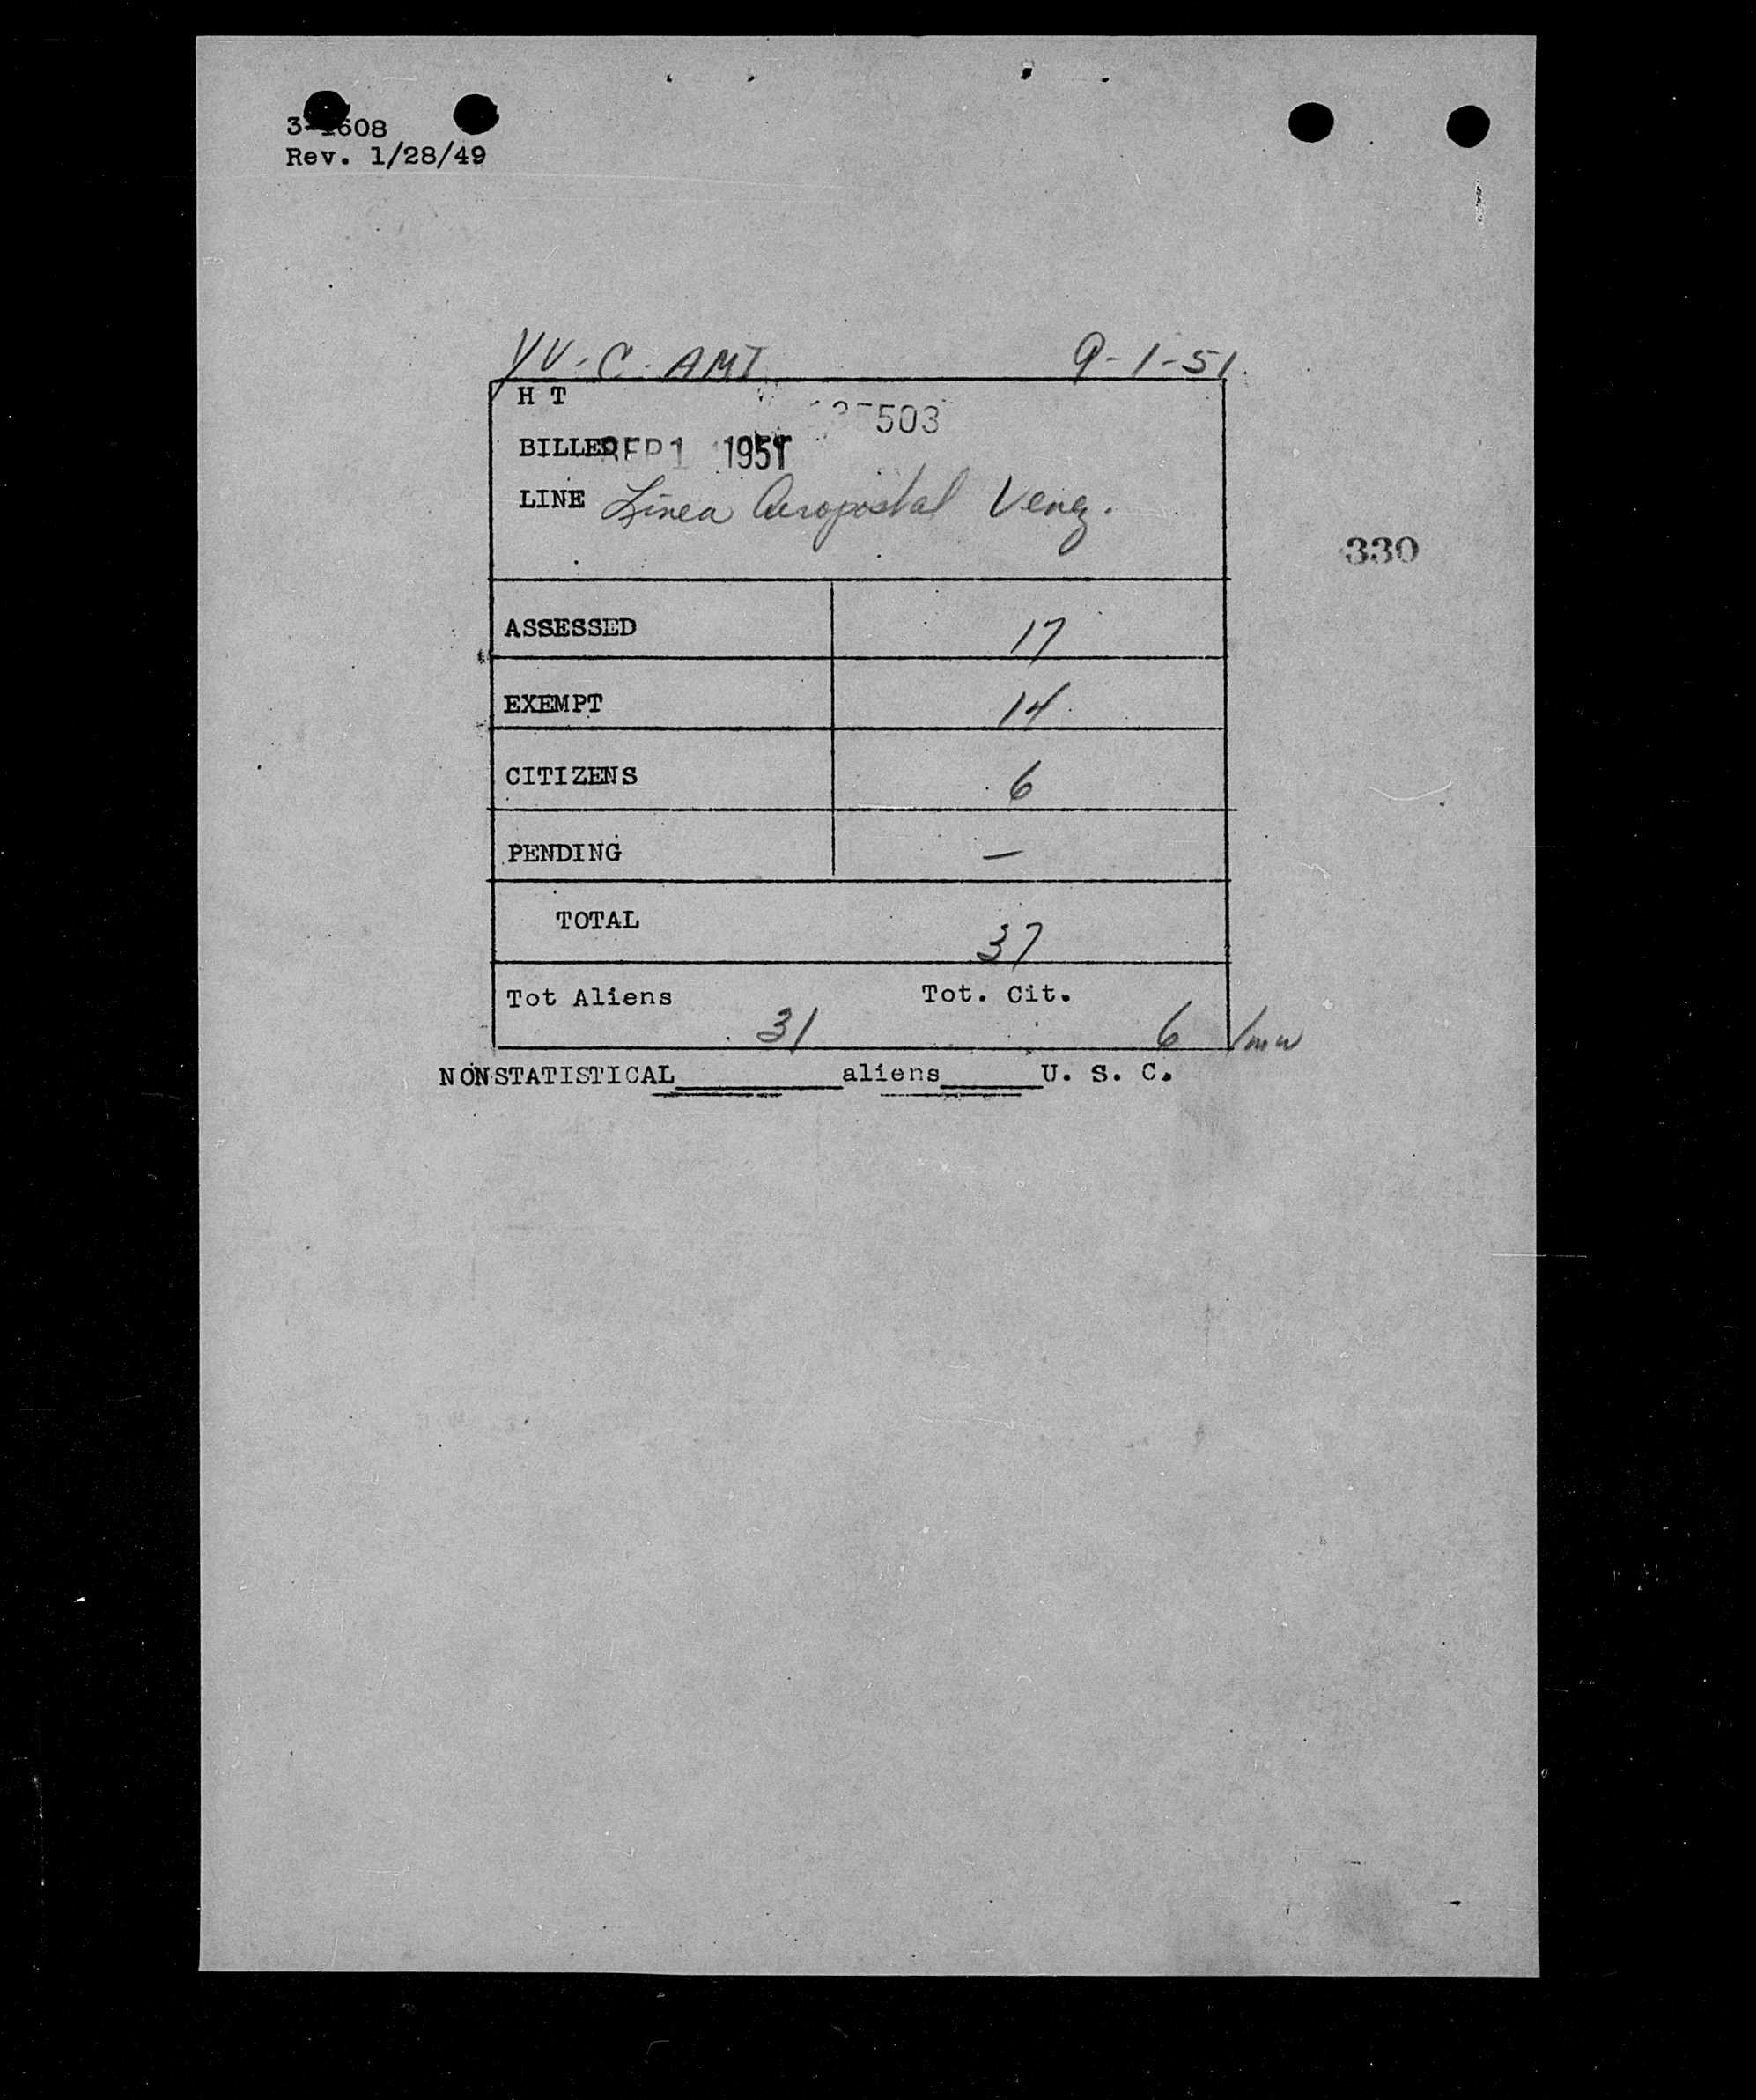 3-1608
Rev. 1/28/49
YV-C-AMI 9-1-51
H T
503
BILLED SEP 1 1951
LINE Linea Aeropostal Venez.
330
ASSESSED 17
EXEMPT 14
CITIZENS 6
PENDING —
TOTAL 37
Tot Aliens 31 Tot. Cit. 6 /mw
NONSTATISTICAL________aliens_____U. S. C.